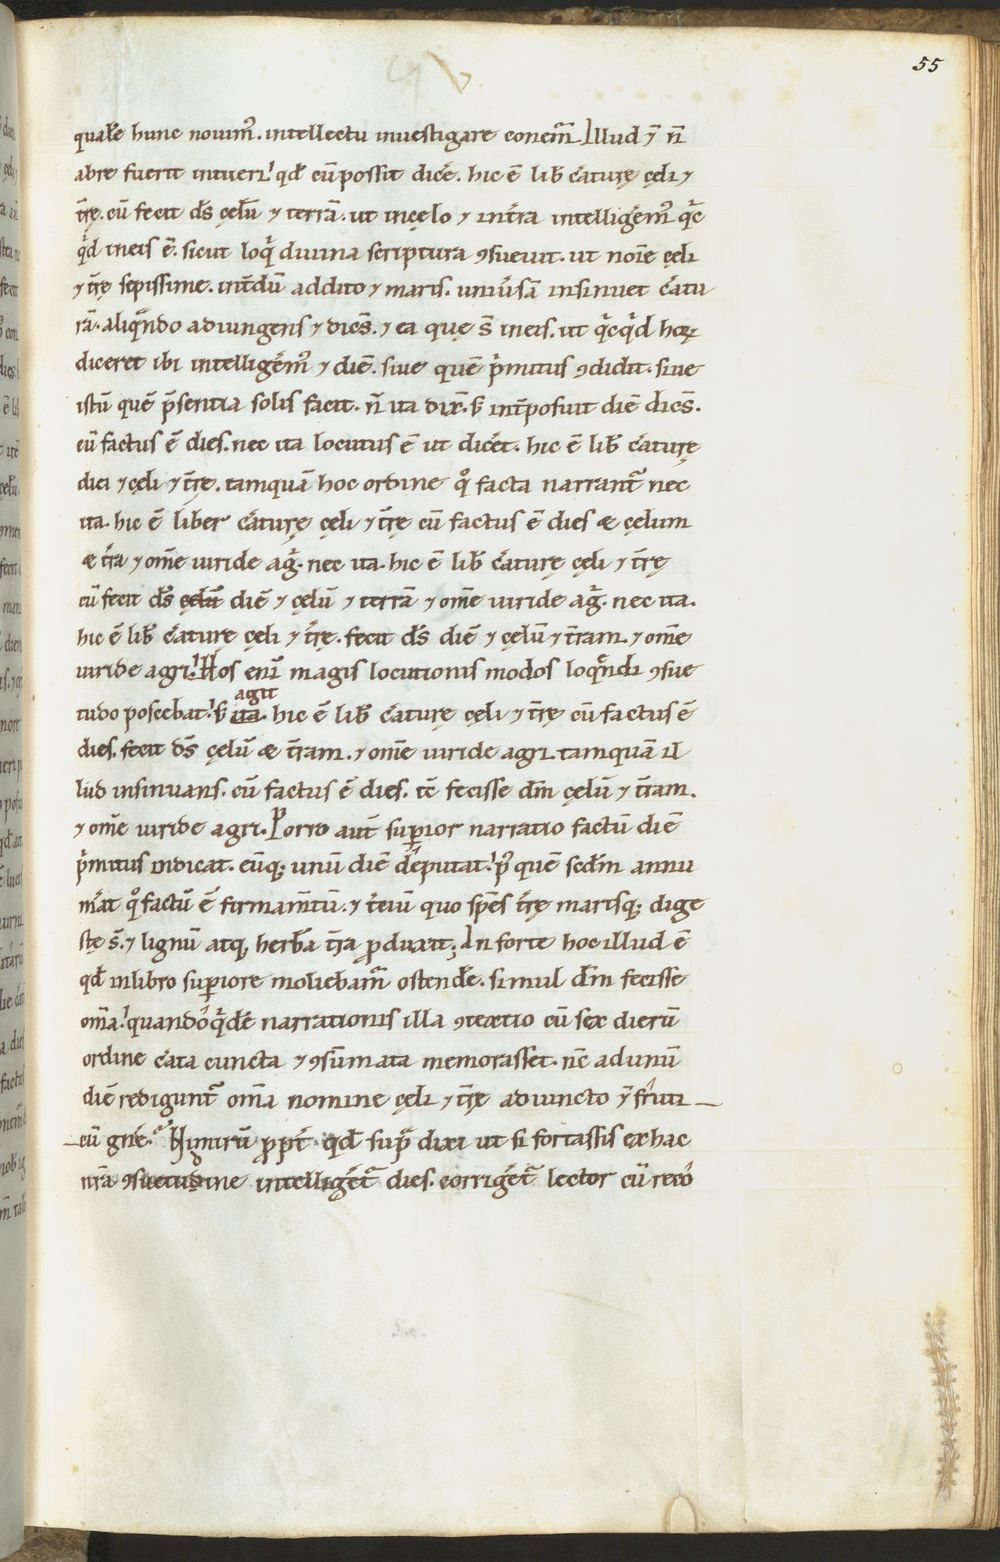 55
qualẽ hunc nouim᷒. intellectu inuestigare conem̃. Illud ⁊ ñ
abre fuerit intueri. qd̃ cũ possit dicẽ. hic ẽ lib̃ c̃aturę cęli ⁊
t̃rę. cũ fecit ds̃ cęlũ ⁊ terrã. ut incęlo ⁊ int̃ra intelligẽm᷒ q̃c
q̃d ineis ẽ. sicut loq̃ diuina scriptura ꝯsueuit. ut noĩe cęli
⁊ t̃rę sepissime. int̃dũ addito ⁊ maris. uniũsã insinuet c̃atu
rã. aliq̃ndo adiungens ⁊ dicẽs. ⁊ ea quę s̃ ineis. ut q̃cq̃d hoꝝ
diceret ibi intelligẽm᷒ ⁊ diẽ. siue quẽ p̃mitus ꝯdidit. siue
istũ quẽ p̃sentia solis facit. ñ ita dix̃. s; int̃posuit diẽ dicẽs.
cũ factus ẽ dies. nec ita locutus ẽ ut dicẽt. hic ẽ lib̃ c̃aturę
diei ⁊ cęli ⁊ t̃rę. tamquã hoc ordine q̊ facta narrant᷒ nec
ita. hic ẽ liber c̃aturę cęli ⁊ t̃rę cũ factus ẽ dies æ cęlum
æ t̃ra ⁊ om̃e uiride ag̃. nec ita. hic ẽ lib̃ c̃aturę cęli ⁊ t̃rę
cũ fecit ds̃ cęlũ diẽ ⁊ cęlũ ⁊ terrã ⁊ om̃e uiride ag̃. nec ita.
hic ẽ lib̃ c̃aturę cęli ⁊ t̃rę. fecit ds̃ diẽ ⁊ cęlũ ⁊ t̃ram. ⁊ om̃e
uiride agri. Hos enĩ magis locutionis modos loq̃ndi ꝯsue
agit
tudo poscebat. s; ita. hic ẽ lib̃ c̃aturę cęli ⁊ t̃rę cũ factus ẽ
dies. fecit ds̃ cęlũ æ t̃ram. ⁊ om̃e uiride agri. tamquã il
lud insinuans. cũ factus ẽ dies. tc̃ fecisse dm̃ cęlũ ⁊ t̃ram.
⁊ om̃e uiride agri. Porro aut̃ suꝑior narratio factũ diẽ
p̃mitus indicat. eũq; unũ diẽ deputat. p᷒ quẽ scdm̃ annu
m̃at q̊ factũ ẽ firmam̃tũ. ⁊ t̃ciũ quo spẽs t̃rę marisq; dige
stę s̃. ⁊ lignũ atq; herbã t̃ra ꝓduxit; An forte hoc illud ẽ
qd̃ inlibro suꝑiore moliebam̃ ostendẽ. simul dm̃ fecisse
om̃a. quandoq̃dẽ narrationis illa ꝯtextio cũ sex dierũ
ordine c̃ata cuncta ⁊ ꝯsũmata memorasset. nc̃ adunũ
diẽ redigunt᷒ om̃a nomine cęli ⁊ t̃rę adiuncto ⁊ fruti
cũ gñe. Nimirũ ꝓpt̃ qd̃ sup̃ dixi ut si fortassis ex hac
nr̃a ꝯsuetudine intelligẽt᷒ dies. corrigẽt᷒ lector cũ reco